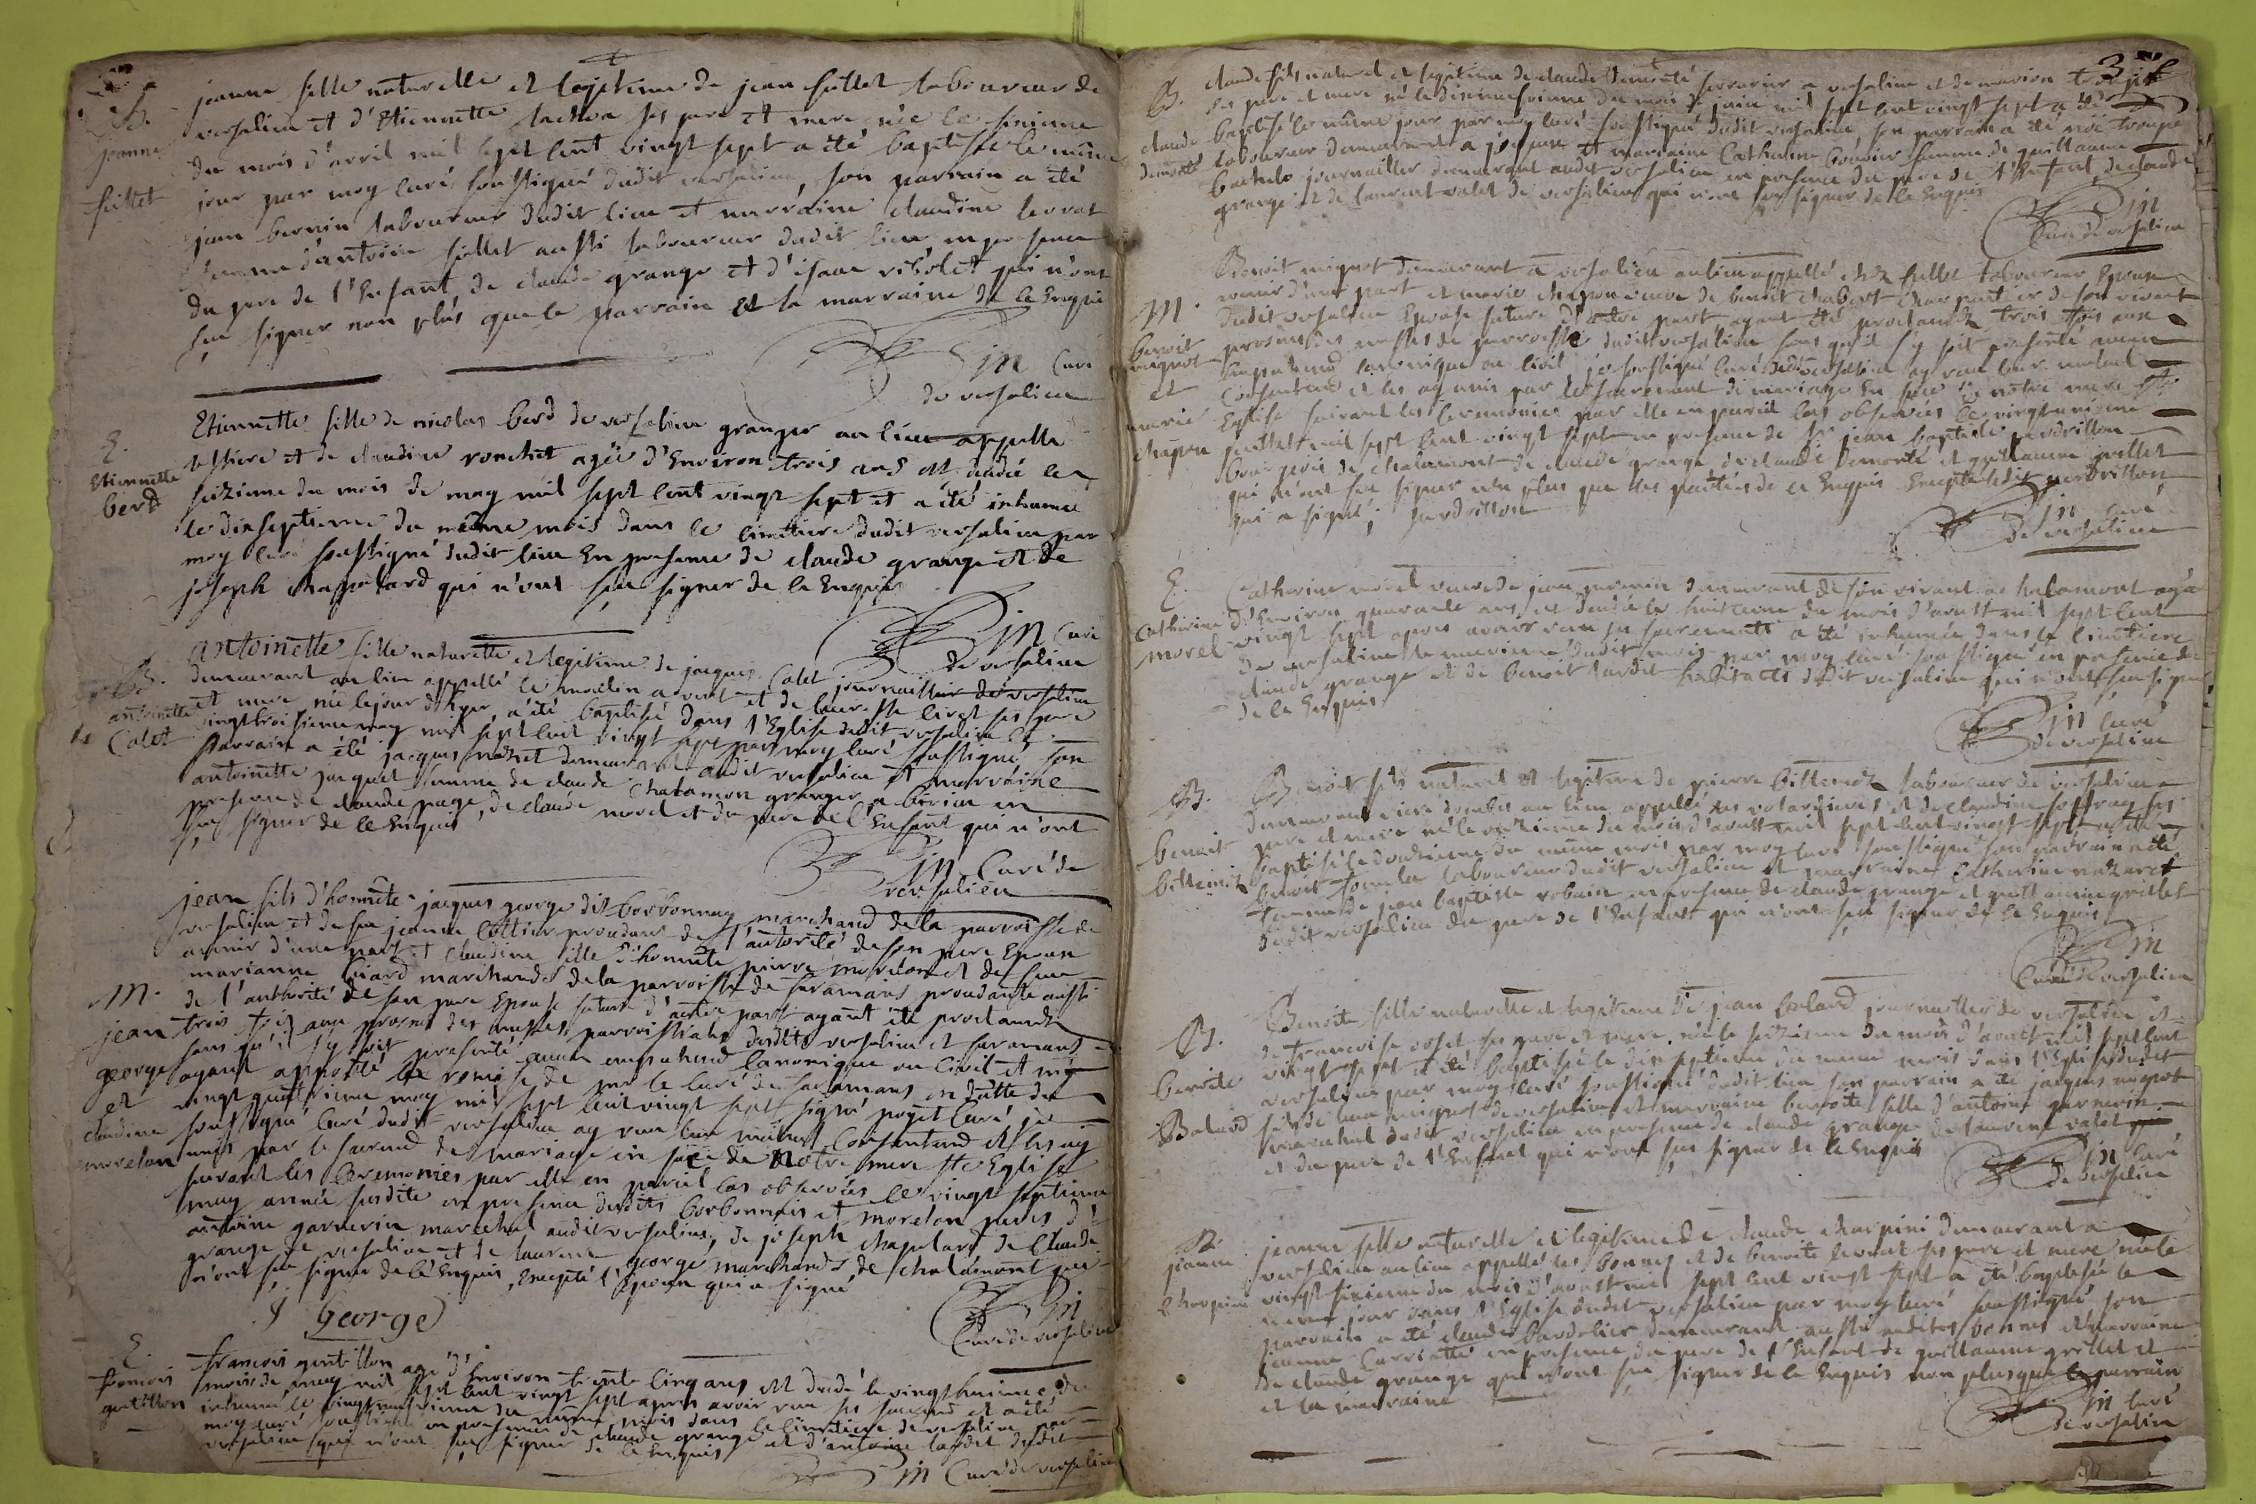 B.
jeanne
fillet
jeanne fille naturelle et legitime de jean fillet laboureur de
versalieu et d'Etiennette tachon ses pere et mere née le
du mois d'avril mil sept cent vingt sept a été baptisée le même
jour par moy curé soussigné dudit versalieu, son parrain a été
jean bernin laboureur dudit lieu et marraine claudine
femme d'antoine fillet aussi laboureur dudit lieu, en presence
du pere de l'Enfant de claude grange et d'isaac qui n'ont
sçu signer non plus que le parrain et la marraine de ce Enquis
curé
de versalieu
E.
Etiennette
berd
Etiennette fille de nicolas berd de versalieu granger au lieu appellé
et de claudine ronchet agée d'Environ trois ans est decedée le
seizieme du mois de may mil sept cent vingt sept et a été inhumée
le dixseptieme du même mois dans le cimetiere dudit versalieu par
moy curé soussigné dudit lieu En presence de claude grange et de
joseph chappolard qui n'ont sçu signer de ce Enquis
curé
de versalieu
B.
antoinette
Calet
antoinette fille naturelle et legitime de jacques Calet journaillier de versalieu
demeurant au lieu appellé le moulin a vent et de ses pere
et mere née le jour d'hyer, a été baptisée dans l'Eglise dudit versalieu le
vingt troisieme may mil sept cent vingt sept par moy curé soussigné, son
parrain a été jacques demeurant audit versalieu et marraine
antoinette jacquet femme de claude Chatamon granger a en
presence de claude page, de claude morel et du pere de l'Enfant qui n'ont
sçu signer de ce Enquis
Curé de
versalieu
M.
jean
george
et
claudine
morelon
jean fils d'honnête jacques george dit borbonnay marchand de la parroisse de
versalieu et de feu jeanne cottier procedant de l'autorité de son pere Epoux
avenir d'une part et claudine fille d'honnête pierre morelon et de feue
marianne marchands de la parroisse de faramans procedante aussi
de l'authorité de son pere Epouse future d'autre part ayant été proclamez
trois fois aux prosnes des messes parroissiales desdits versalieu et faramans
sans qu'il s'y soit presenté aucun empechement canonique ou civil et m'
ayant apporté la remise de mr le curé de faramans en datte du
vingt quatrieme may mil sept cent vingt sept signé poget curé je
soussigné curé dudit versalieu ay reçu leur mutuel consentement et les ay
unis par le sacrement de mariage en face de Notre mere ste Eglise
suivant les ceremonies par elle en pareil cas observées le vingt septieme
may année susdite en presence desdits borbonnais et morelon peres d'
antoine garnerin marechal audit versalieu, de joseph chapolard de Claude
grange de versalieu et de laurent george marchands de chalamont qui
n'ont sçu signer de ce Enquis, Excepté l'Epoux qui a signé
J George
Curé de versalieu
E.
françois
gentillon
françois gentillon agé d'Environ trente cinq ans est decedé le vingt huitieme du
mois de may mil sept cent vingt sept apres avoir reçu ses sacrements et a été
inhumé le vingt neuvieme du même mois dans le cimetiere de versalieu par
moy curé soussigné en presence de claude grange et d'antoine tardit dudit
versalieu qui n'ont sçu signer de ce Enquis
Curé de versalieu
B.
claude
demonté
claude fils naturel et legitime de claude demonté serrurier a versalieu et de marion
ses pere et mere né le dixneufvieme du mois de juin mil sept cent vingt sept a été
baptisé le même jour par moy curé soussigné dudit versalieu, son parrain a été
laboureur demeurant a et marraine Catherine femme de guillaume
journaillier demeurant audit versalieu en presence du pere de l'Enfant, de claude
grange et de laurent valet de versalieu qui n'ont sçu signer de ce Enquis
Curé de versalieu
M.
benoit
mignot
et
marie
chapon
Benoit mignot demeurant a versalieu au lieu appellé chez fillet laboureur Epoux
avenir d'une part et marie chapon veuve de benoit chabert charpentier de son vivant
dudit versalieu Epouse future d'autre part ayant été proclamez trois fois aux
prosnes des messes de parroisse dudit versalieu sans qu'il s'y soit presenté aucun
empechement canonique ou civil, je soussigné curé dudit versalieu ay reçu leur mutuel
consentement et les ay unis par le sacrement de mariage en face de notre mere ste
Eglise suivant les ceremonies par elle en pareil cas observées le vingt unieme
juillet mil sept cent vingt sept en presence de sr jean baptiste perdrillon
bourgeois de chalamont de claude grange, de claude Demonté et guillaume grillet
qui n'ont sçu signer non plus que les parties de ce Enquis Excepté ledit perdrillon
qui a signé; perdrillon
curé
de versalieu
E.
Catherine
morel
Catherine morel veuve de jean demeurant de son vivant a chalamont agée
d'Environ quarante ans est decedée le huitieme du mois d'aoust mil sept cent
vingt sept apres avoir reçu ses sacrements a été inhumée dans le cimetiere
de versalieu le neuvieme dudit mois par moy curé soussigné en presence de
claude grange et de benoit tardit habitants dudit versalieu qui n'ont sçu signer
de ce Enquis
curé
de versalieu
B.
benoit
Benoit fils naturel et legitime de pierre laboureur de versalieu
demeurant au lieu appellé les volardieres et de claudine ses
pere et mere né le onzieme du mois d'aoust mil sept cent vingt sept a été
baptisé le douzieme du même mois par moy curé soussigné son parrain a été
benoit laboureur dudit versalieu et marraine Catherine nazaret
femme de jean baptiste robain en presence de claude grange et guillaume grillet
dudit versalieu du pere de l'Enfant qui n'ont sçu signer de ce Enquis
Curé de versalieu
B.
benoite
Balard
Benoite fille naturelle et legitime de jean balard journaillier de versalieu et
de françoise ses pere et mere, née le seizieme du mois d'aoust mil sept cent
vingt sept et a été baptisée le dix septieme du même mois dans l'Eglise dudit
versalieu par moy curé soussigné dudit lieu son parrain a été jacques mignot
fils de mignot de versalieu et marraine benoite fille d'antoine garnerin
marechal dudit versalieu en presence de claude grange de laurent valet
et du pere de l'Enfant qui n'ont sçu signer de ce Enquis
curé
de versalieu
B.
jeanne
charpini
jeanne fille naturelle et legitime de claude charpini demeurant a
versalieu au lieu appellé les bonnes et de benoite ses pere et mere née le
vingt sixieme du mois d'aoust mil sept cent vingt sept a été baptisée le
même jour dans l'Eglise dudit versalieu par moy curé soussigné, son
parrain a été claude demeurant aussi audites bonnes et marraine
jeanne en presence du pere de l'Enfant de guillaume grillet et
de claude grange qui n'ont sçu signer de ce Enquis non plus que le parrain
et la marraine
curé
de versalieu